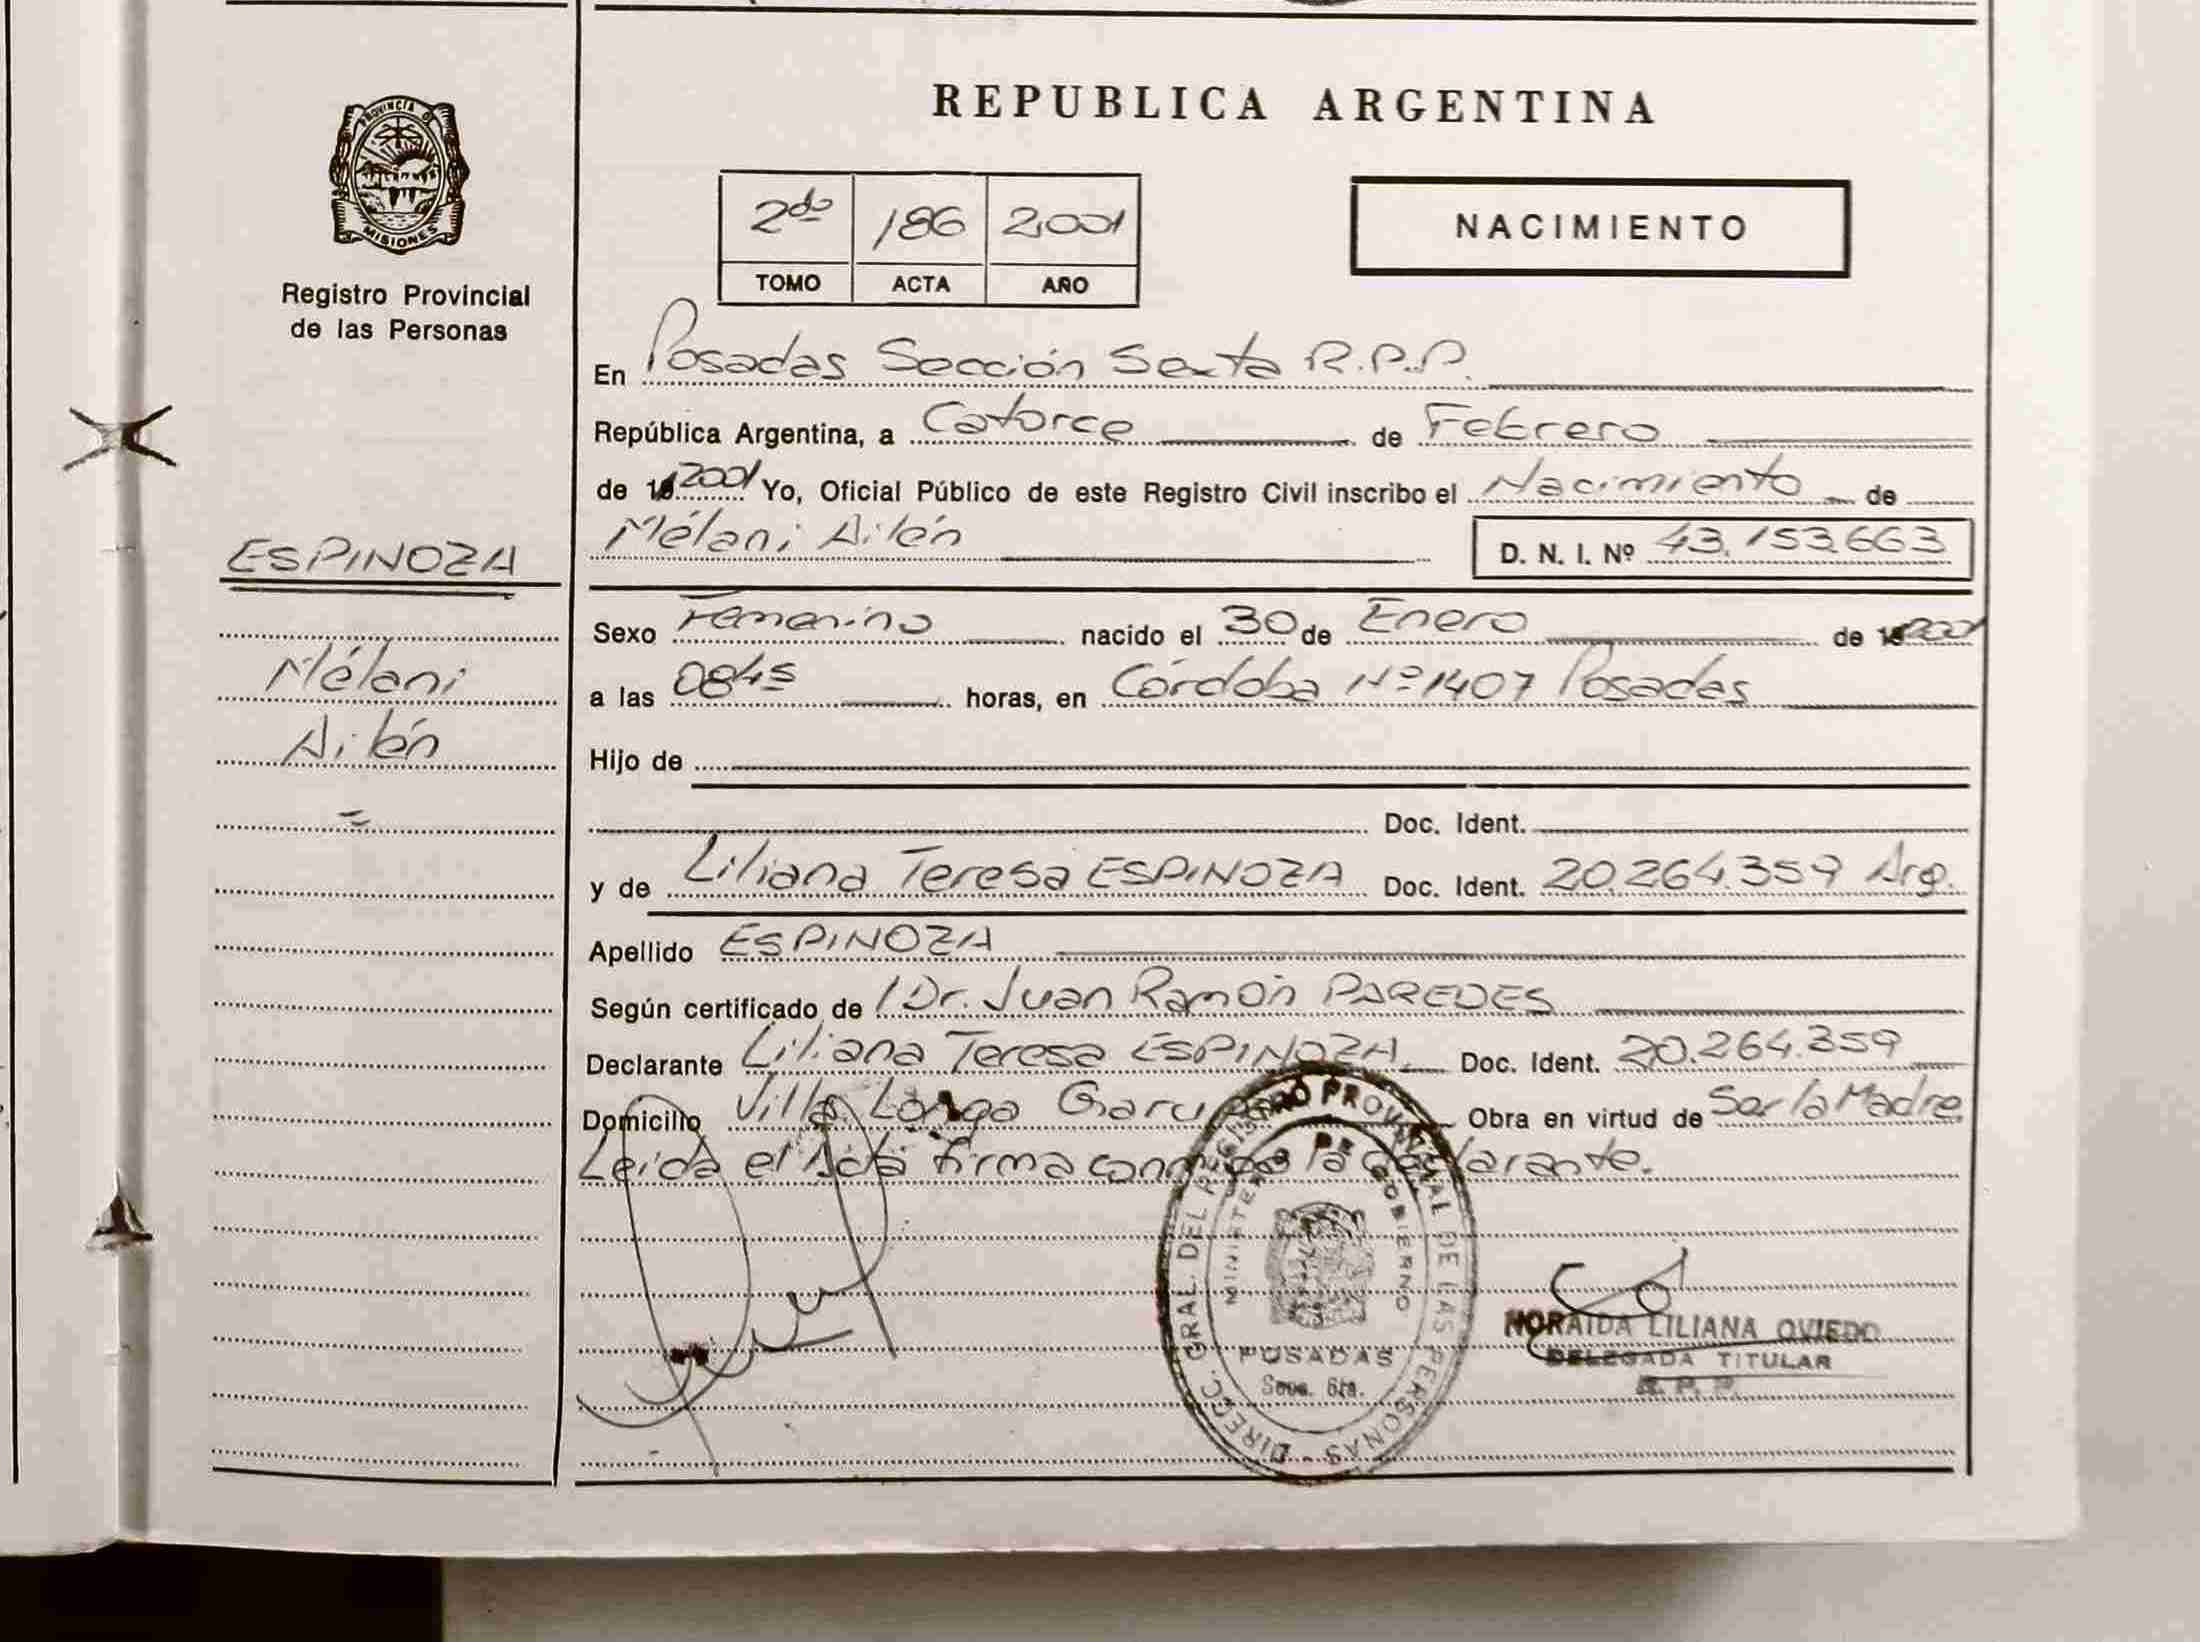 PROVINCIA DE
MISIONES
Registro Provincial
de las Personas
ESPINOZA
Mélani
Ailén
REPUBLICA ARGENTINA
2do 186 2,001
TOMO ACTA AÑO
NACIMIENTO
En Posadas Sección Sexta R.P.P.
República Argentina, a Catorce de Febrero
de 2001 Yo, Oficial Público de este Registro Civil inscribo el Nacimiento de
Mélani Ailén D. N. I. Nº 43.153.663
Sexo Femenino nacido el 30 de Enero de 2001
a las 0845 horas, en Córdoba Nº 1407 Posadas
Hijo de
Doc. Ident.
y de Liliana Teresa ESPINOZA Doc. Ident. 20.264.359 Arg.
Apellido ESPINOZA
Según certificado de Dr. Juan Ramón PAREDES
Declarante Liliana Teresa ESPINOZA Doc. Ident. 20.264.359
Domicilio Villa Longa Obra en virtud de Ser la Madre.
Leida el Acta firma conmigo la declarante.
DIRECC. GRAL. DEL REGISTRO PROVINCIAL DE LAS PERSONAS
MINISTERIO DE GOBIERNO
POSADAS
Secc. 6ta.
NORAIDA LILIANA OVIEDO
DELEGADA TITULAR
R. P. P.